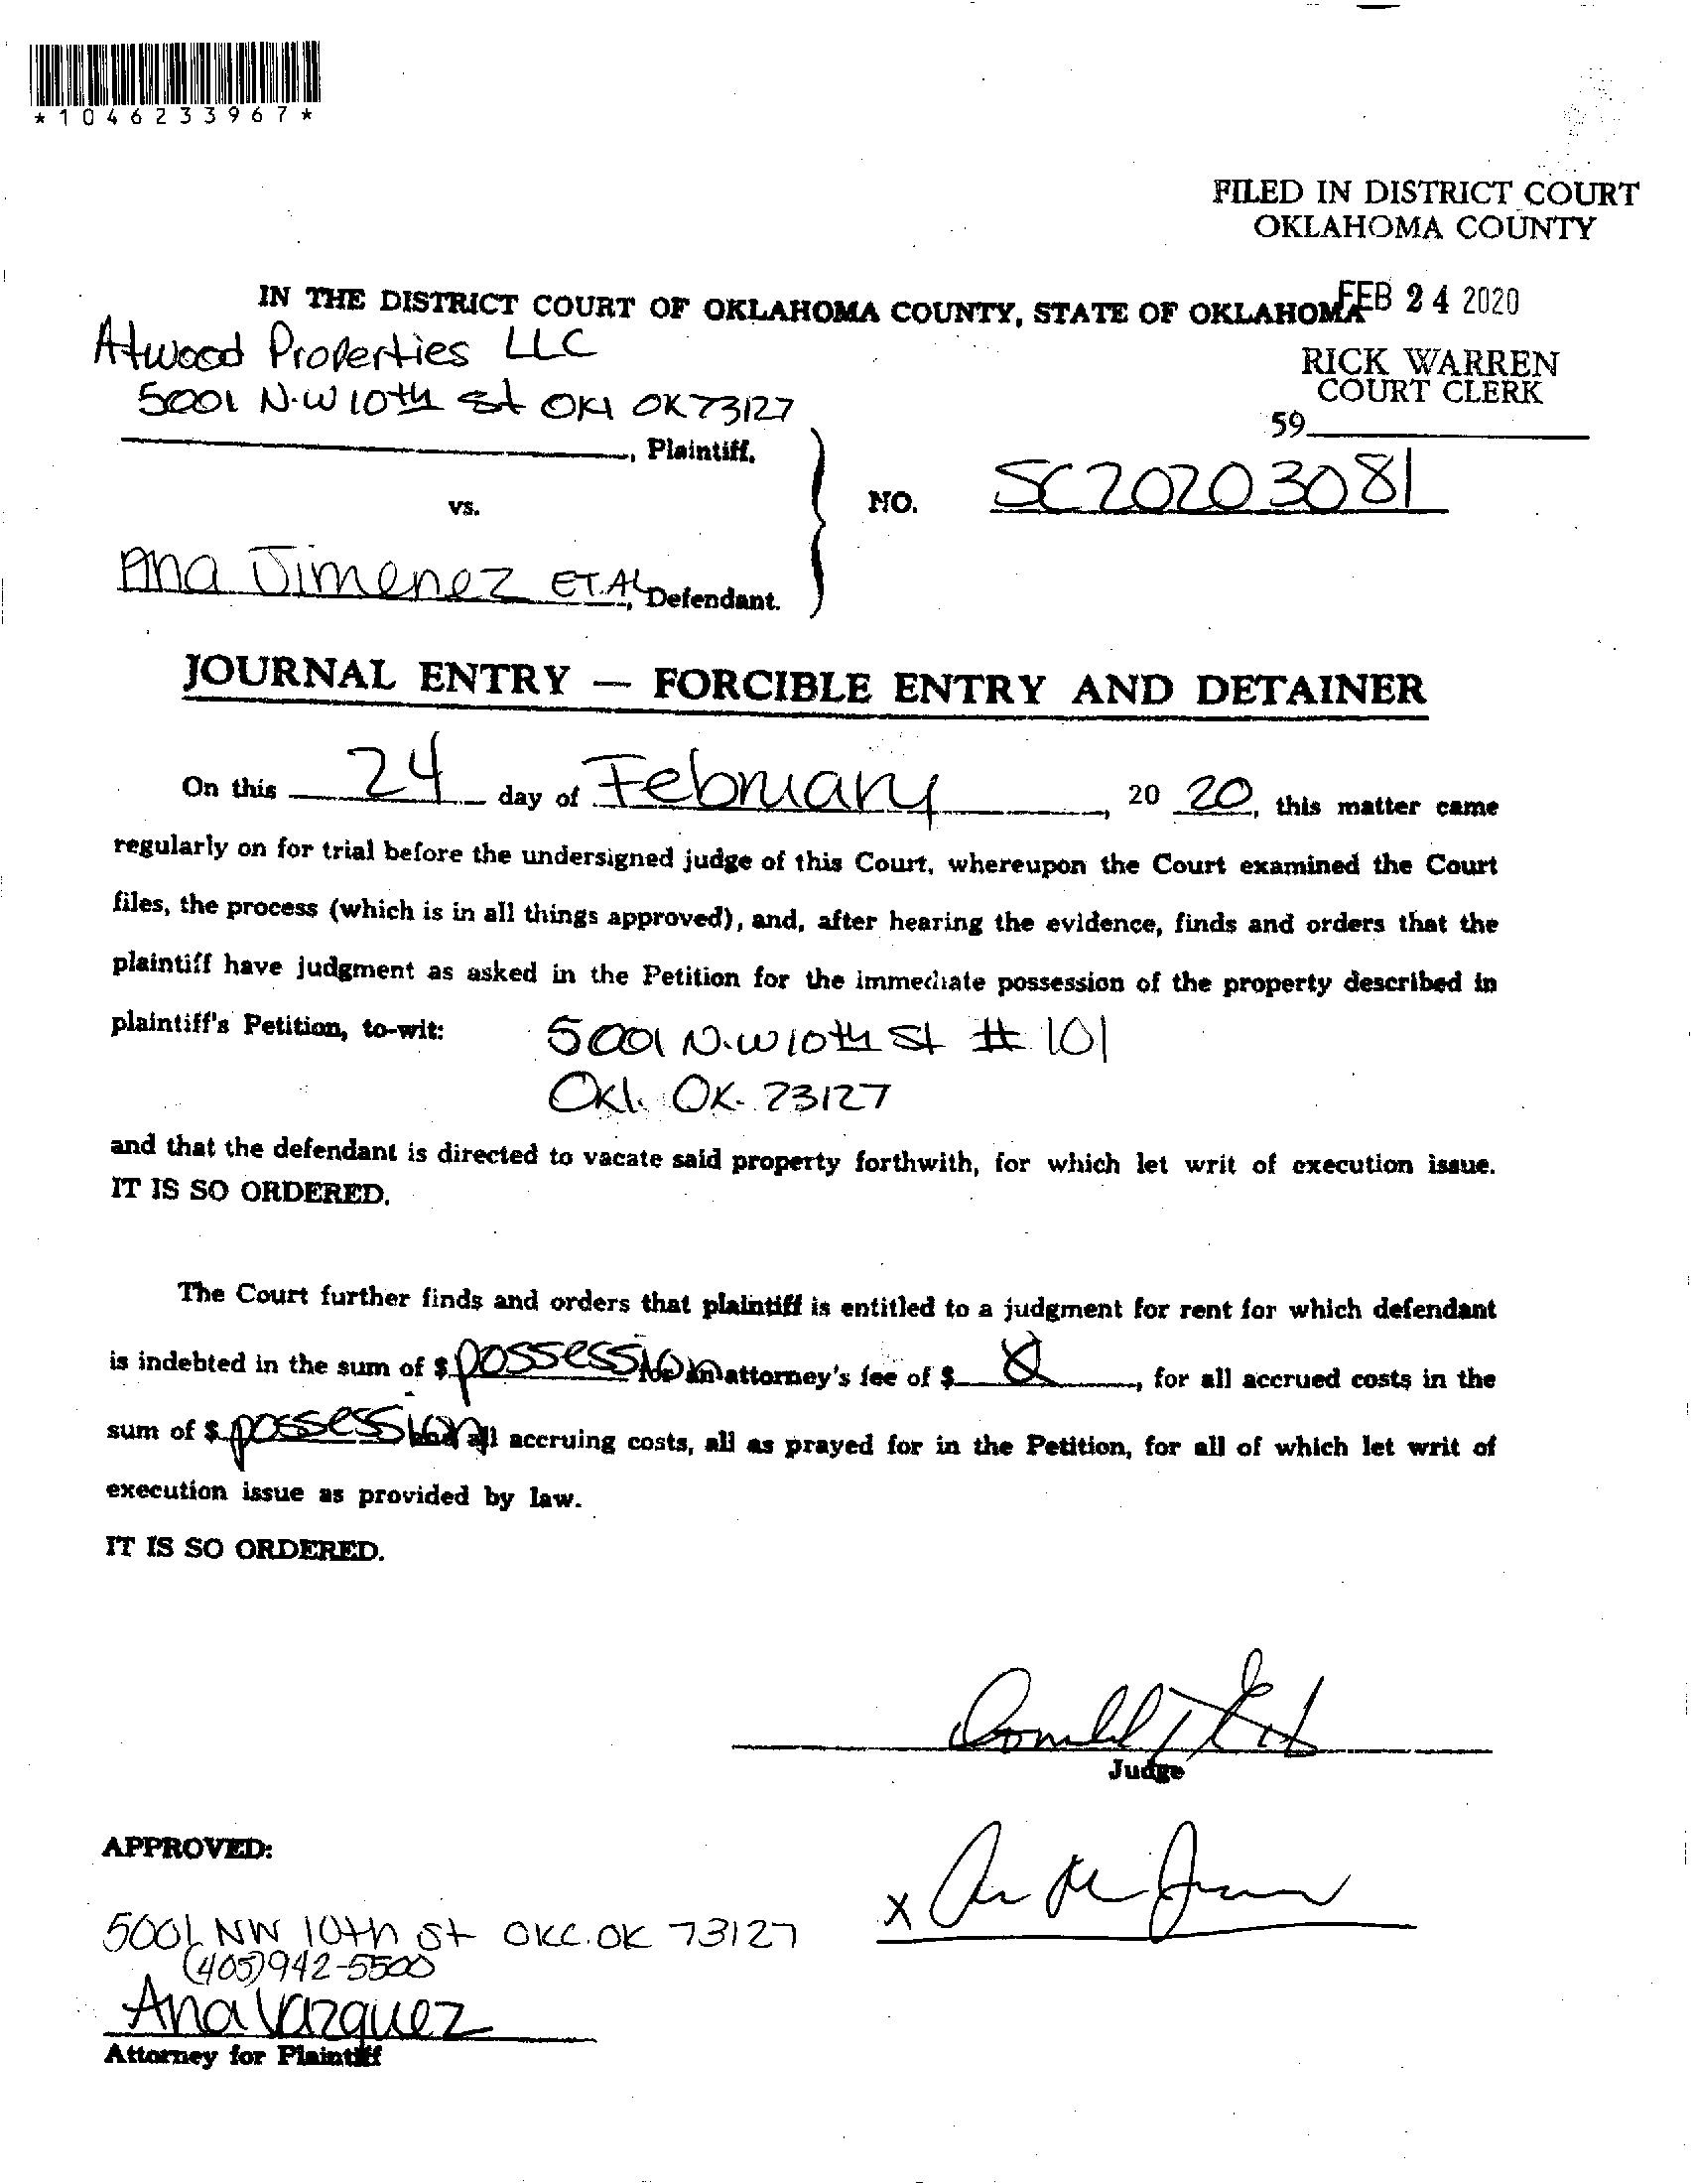 *1046233967*
FILED IN DISTRICT COURT
OKLAHOMA COUNTY
IN THE DISTRICT COURT OF OKLAHOMA COUNTY, STATE OF OKLAHOMA
FEB 24 2020
Atwood Properties LLC
RICK WARREN
COURT CLERK
5001 N.W 10th St OKl OK 73127
59
, Plaintiff,
vs.
NO. SC20203081
Ana Jimenez ET.AL, Defendant.
JOURNAL ENTRY — FORCIBLE ENTRY AND DETAINER
On this 24 day of February, 20 20, this matter came
regularly on for trial before the undersigned judge of this Court, whereupon the Court examined the Court
files, the process (which is in all things approved), and, after hearing the evidence, finds and orders that the
plaintiff have judgment as asked in the Petition for the immediate possession of the property described in
plaintiff's Petition, to-wit: 5001 N.W 10th St # 101
Okl. OK. 73127
and that the defendant is directed to vacate said property forthwith, for which let writ of execution issue.
IT IS SO ORDERED.
The Court further finds and orders that plaintiff is entitled to a judgment for rent for which defendant
is indebted in the sum of $ possession for an attorney's fee of $, for all accrued costs in the
sum of $ possession and all accruing costs, all as prayed for in the Petition, for all of which let writ of
execution issue as provided by law.
IT IS SO ORDERED.
Judge
APPROVED:
x
5001 NW 10th St OKC. OK 73127
(405)942-5500
Ana Vazquez
Attorney for Plaintiff